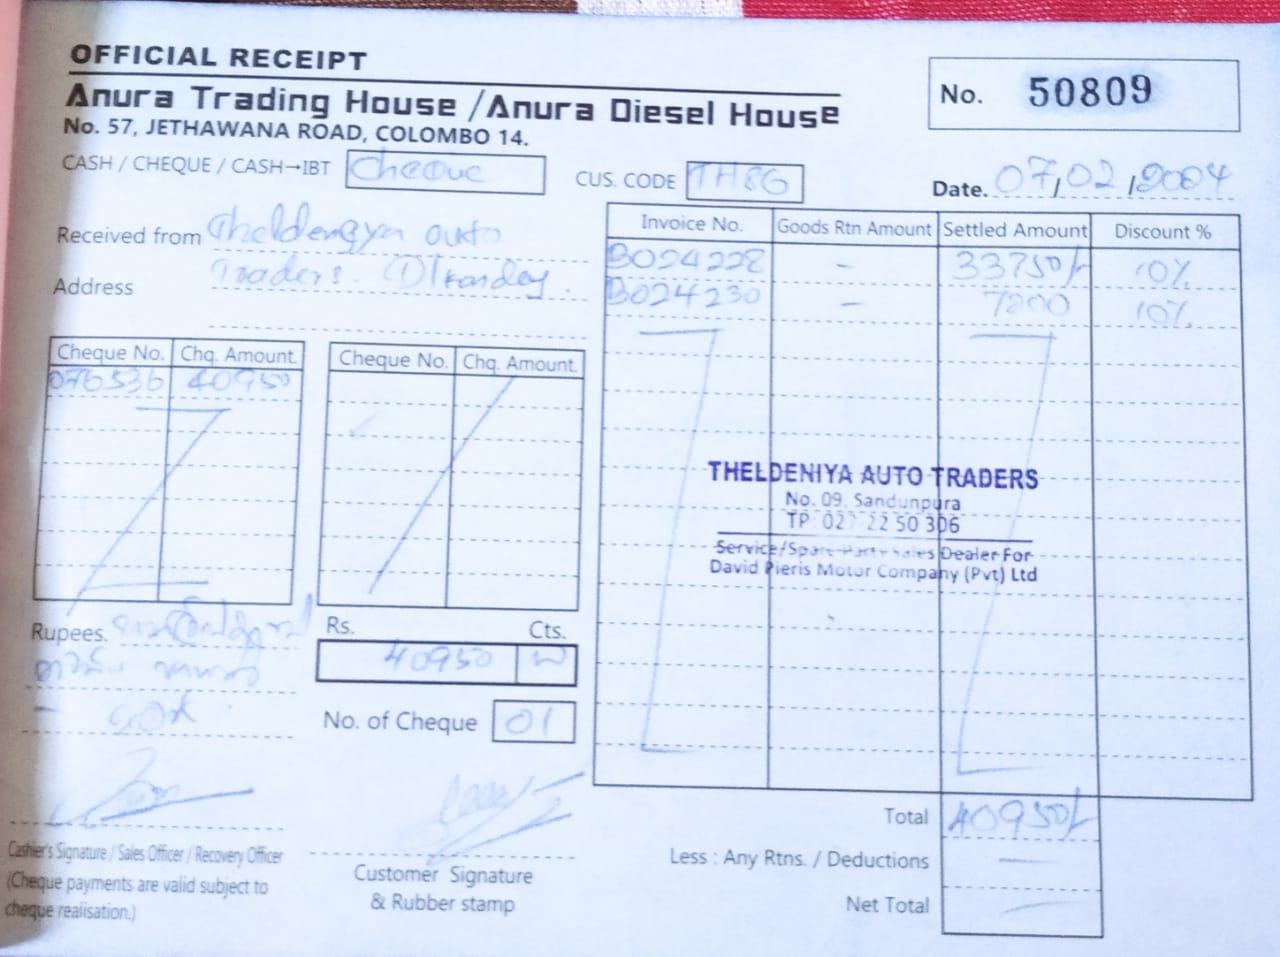 OFFICIAL RECEIPT
Anura Trading House / Anura Diesel House
No. 57, JETHAWANA ROAD, COLOMBO 14.
No. 50809
CASH / CHEQUE / CASH→IBT Cheque
CUS. CODE TH8G
Date. 07/02/2024
Received from Auto
Address Traders.
Invoice No. Goods Rtn Amount Settled Amount Discount %
B024228 - 33750/- 10%
B024230 - 7200 10%
Cheque No. Chq. Amount. Cheque No. Chq. Amount.
076536 40950
THELDENIYA AUTO TRADERS
No. 09, Sandunpura
TP: 027 22 50 306
Service/Spare Parts Sales Dealer For
David Pieris Motor Company (Pvt) Ltd
Rupees.
Rs. Cts.
40950
No. of Cheque 01
Total 40950/-
Less : Any Rtns. / Deductions —
Net Total —
Cashier's Signature / Sales Officer / Recovery Officer
(Cheque payments are valid subject to
cheque realisation.)
Customer Signature
& Rubber stamp